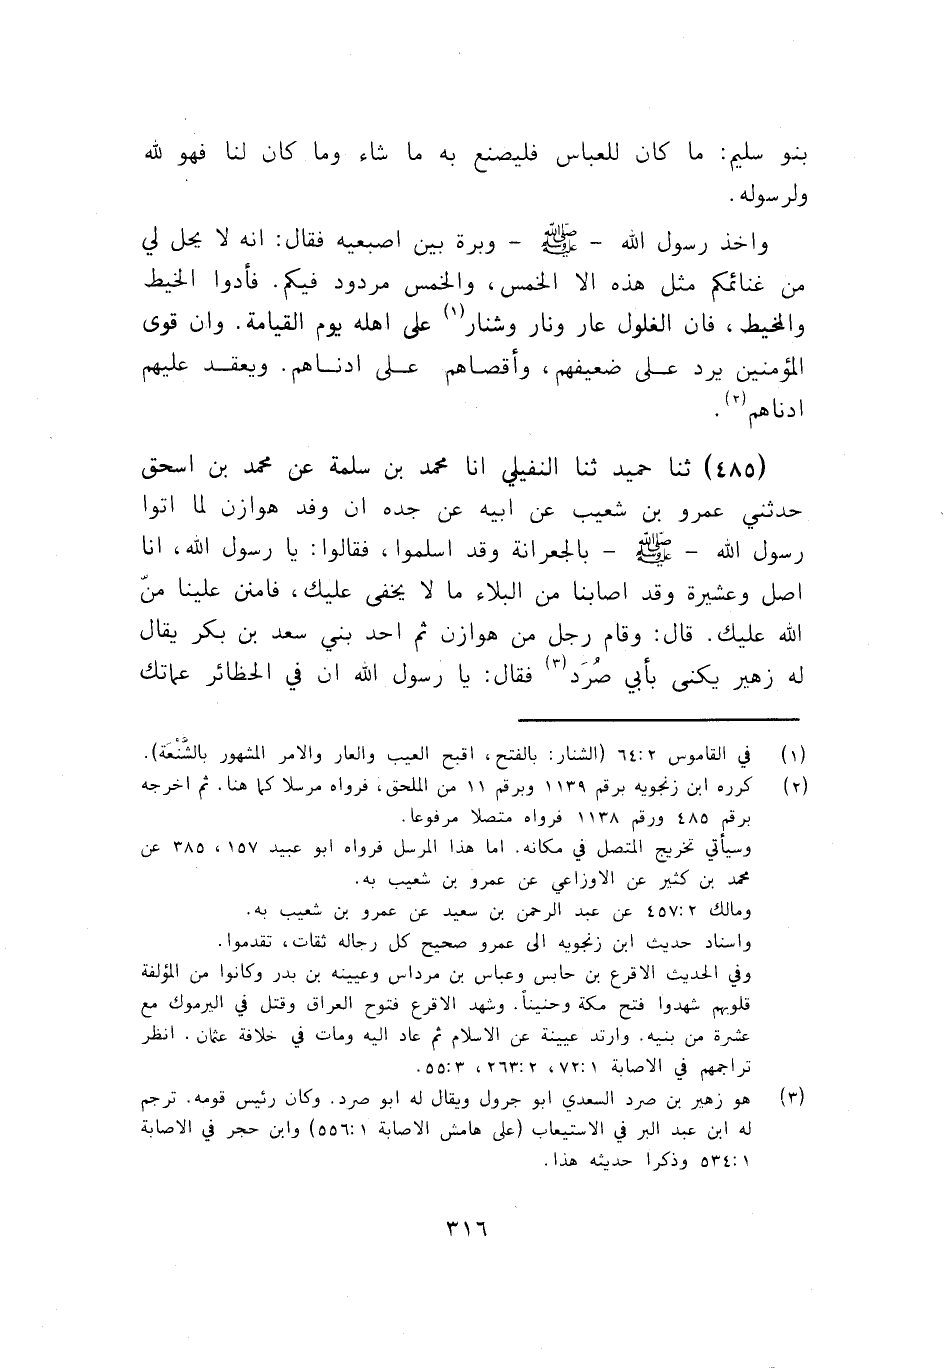 بنو سليم: ما كان للعباس فليصنع به ما شاء وما كان لنا فهو لله
ولرسوله.
واخذ رسول الله - ﷺ - وبرة بين اصبعيه فقال: انه لا يحل لي
من غنائمكم مثل هذه الا الخمس، والخمس مردود فيكم. فأدوا الخيط
والمخيط، فان الغلول عار ونار وشنار(١) على اهله يوم القيامة. وان قوى
المؤمنين يرد على ضعيفهم، وأقصاهم على ادناهم. ويعقد عليهم
ادناهم(٢).
(٤٨٥) ثنا حميد ثنا النفيلي انا محمد بن سلمة عن محمد بن اسحق
حدثني عمرو بن شعيب عن ابيه عن جده ان وفد هوازن لما اتوا
رسول الله - ﷺ - بالجعرانة وقد اسلموا، فقالوا: يا رسول الله، انا
اصل وعشيرة وقد اصابنا من البلاء ما لا يخفى عليك، فامنن علينا منّ
الله عليك. قال: وقام رجل من هوازن ثم احد بني سعد بن بكر يقال
له زهير يكنى بأبي صُرَد(٣) فقال: يا رسول الله ان في الحظائر عماتك
(١) في القاموس ٦٤:٢ (الشنار: بالفتح، اقبح العيب والعار والامر المشهور بالشُّنْعَة).
(٢) كرره ابن زنجويه برقم ١١٣٩ وبرقم ١١ من الملحق، فرواه مرسلا كما هنا. ثم اخرجه
برقم ٤٨٥ ورقم ١١٣٨ فرواه متصلا مرفوعا.
وسيأتي تخريج المتصل في مكانه. اما هذا المرسل فرواه ابو عبيد ١٥٧، ٣٨٥ عن
محمد بن كثير عن الاوزاعي عن عمرو بن شعيب به.
ومالك ٤٥٧:٢ عن عبد الرحمن بن سعيد عن عمرو بن شعيب به.
واسناد حديث ابن زنجويه الى عمرو صحيح كل رجاله ثقات، تقدموا.
وفي الحديث الاقرع بن حابس وعباس بن مرداس وعيينه بن بدر وكانوا من المؤلفة
قلوبهم شهدوا فتح مكة وحنيناً. وشهد الاقرع فتوح العراق وقتل في اليرموك مع
عشرة من بنيه. وارتد عيينة عن الاسلام ثم عاد اليه ومات في خلافة عثمان. انظر
تراجمهم في الاصابة ٧٢:١، ٢٦٣:٢، ٥٥:٣.
(٣) هو زهير بن صرد السعدي ابو جرول ويقال له ابو صرد. وكان رئيس قومه. ترجم
له ابن عبد البر في الاستيعاب (على هامش الاصابة ٥٥٦:١) وابن حجر في الاصابة
٥٣٤:١ وذكرا حديثه هذا.
٣١٦